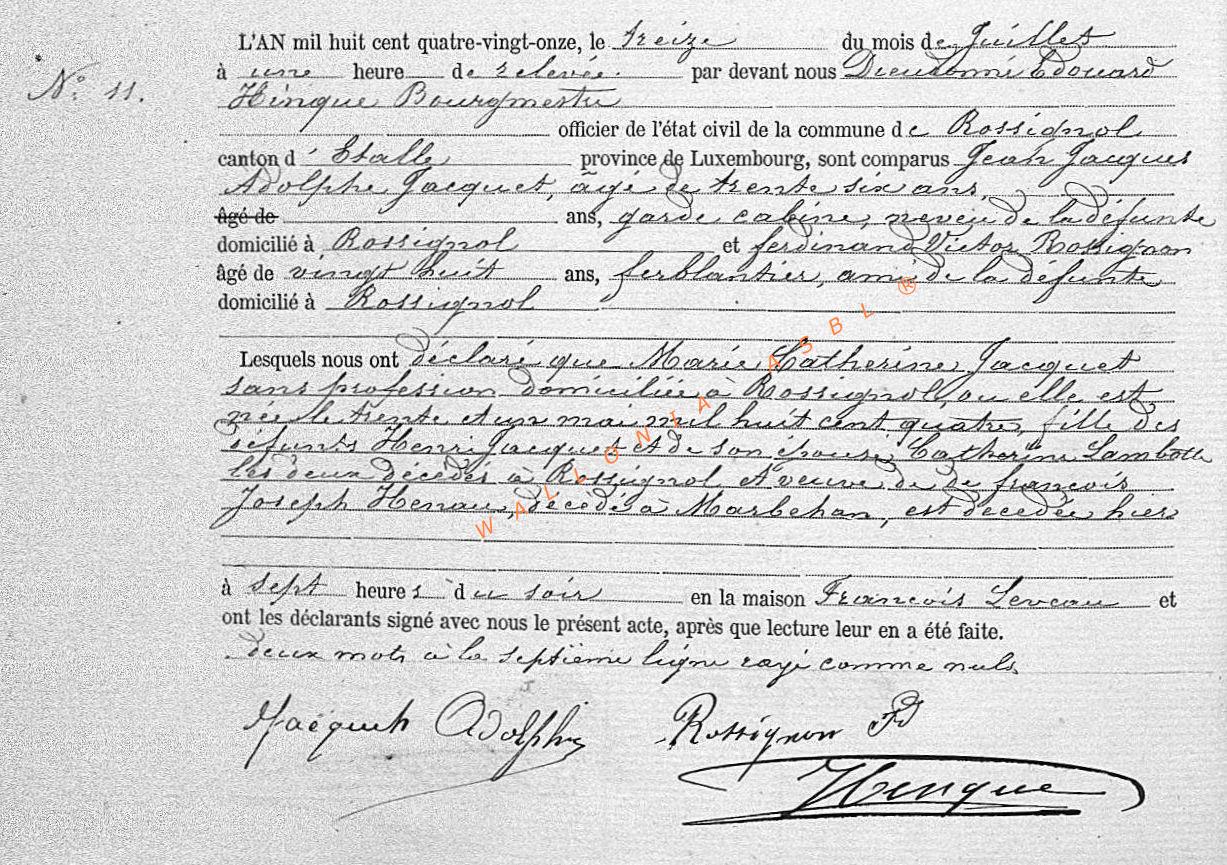 N° 11.
L'AN mil huit cent quatre-vingt-onze, le treize du mois de Juillet
à une heure de relevée. par devant nous Dieudonné Edouard
Hinque Bourgmestre
officier de l'état civil de la commune de Rossignol
canton d'Etalle province de Luxembourg, sont comparus Jean Jacques
Adolphe Jacquet, âgé de trente six ans,
âgé de ans, garde cabine, neveu de la défunte
domicilié à Rossignol et ferdinand Victor Rossignon
âgé de vingt huit ans, ferblantier, ami de la défunte
domicilié à Rossignol
Lesquels nous ont déclaré que Marie Catherine Jacquet
sans profession domiciliée à Rossignol, ou elle est
née le trente et un mai mil huit cent quatre, fille des
défunts Henri Jacquet et de son épouse Catherine Lambotte
les deux décédés à Rossignol et veuve de de francois
Joseph Henau, décédé à Marbehan, est décédée hier
à sept heures du soir en la maison François Leveau et
ont les déclarants signé avec nous le présent acte, après que lecture leur en a été faite.
deux mots à la septième ligne rayé comme nuls
Jacquet Adolphe Rossignon Fd
Hinque
WALLONIA ASBL ®